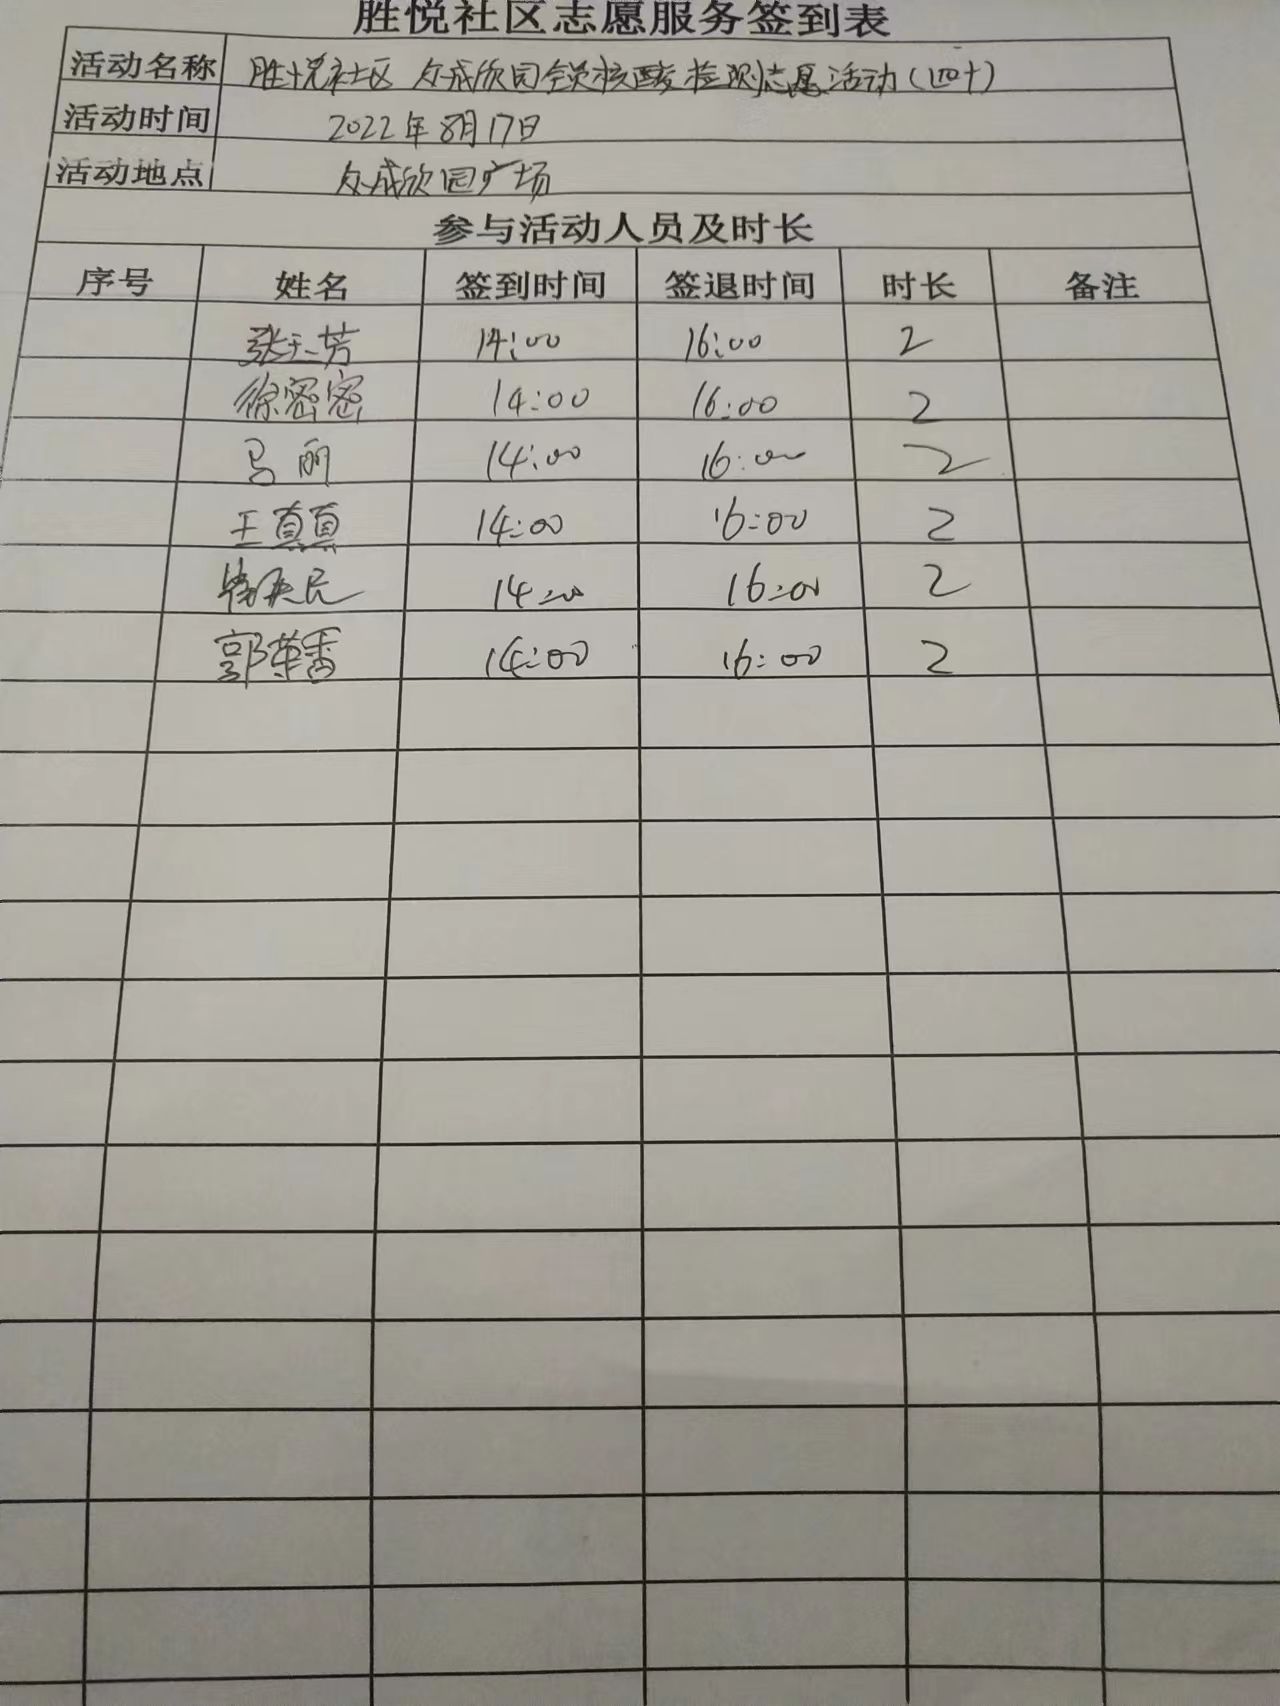 胜悦社区志愿服务签到表
活动名称 胜悦社区 众成欣园全员核酸检测志愿活动(四十)
活动时间 2022年8月17日
活动地点 众成欣园广场
参与活动人员及时长
序号 姓名 签到时间 签退时间 时长 备注
张玉芳 14:00 16:00 2
徐密密 14:00 16:00 2
马丽 14:00 16:00 2
王真真 14:00 16:00 2
民 14:00 16:00 2
郭香 14:00 16:00 2